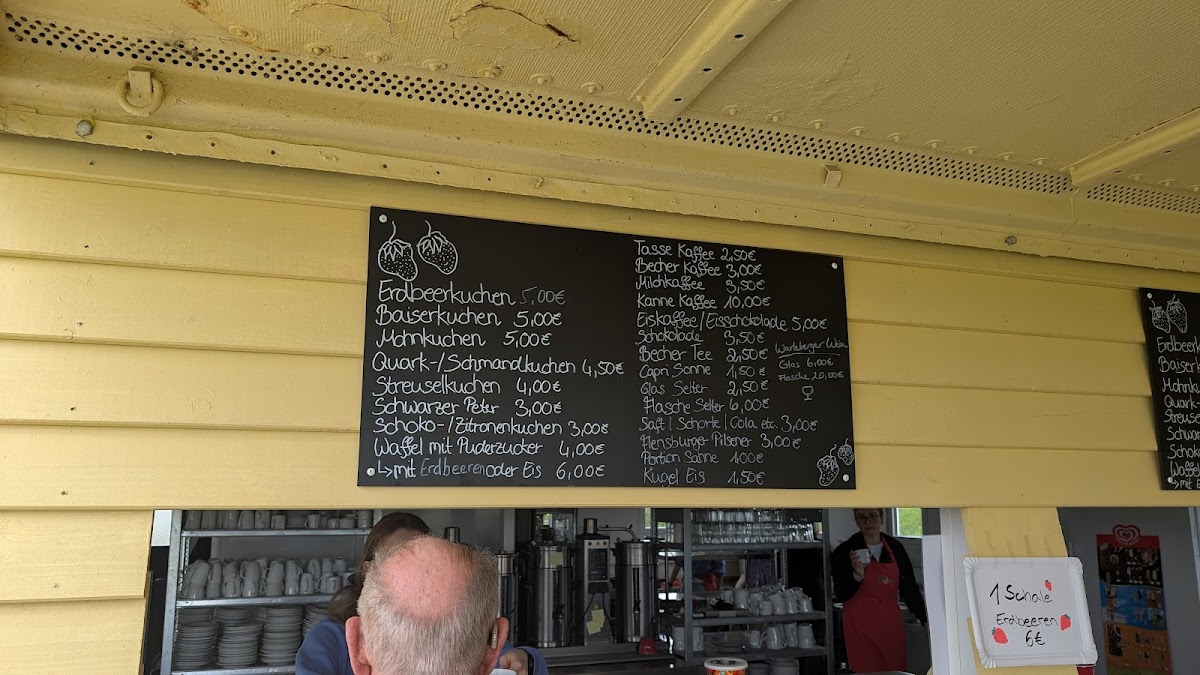 Erdbeerkuchen 5,00€
Baiserkuchen 5,00€
Mohnkuchen 5,00€
Quark-/Schmandkuchen 4,50€
Streuselkuchen 4,00€
Schwarzer Peter 3,00€
Schoko-/Zitronenkuchen 3,00€
Waffel mit Puderzucker 4,00€
↳ mit Erdbeeren oder Eis 6,00€
Tasse Kaffee 2,50€
Becher Kaffee 3,00€
Milchkaffee 3,50€
Kanne Kaffee 10,00€
Eiskaffee/Eisschokolade 5,00€
Schokolade 3,50€
Becher Tee 2,50€
Capri Sonne 1,50€
Glas Selter 2,50€
Flasche Selter 6,00€
Saft | Schorle | Cola etc. 3,00€
Flensburger Pilsener 3,00€
Portion Sahne 1,00€
Kugel Eis 1,50€
Warleberger Wein
Glas 6,00€
Flasche 20,00€
Erdbeerk
Baiserku
Mohnku
Quark-
Streuse
Schwar
Schoko
Waffe
↳ mit E
1 Schale
Erdbeeren
6€